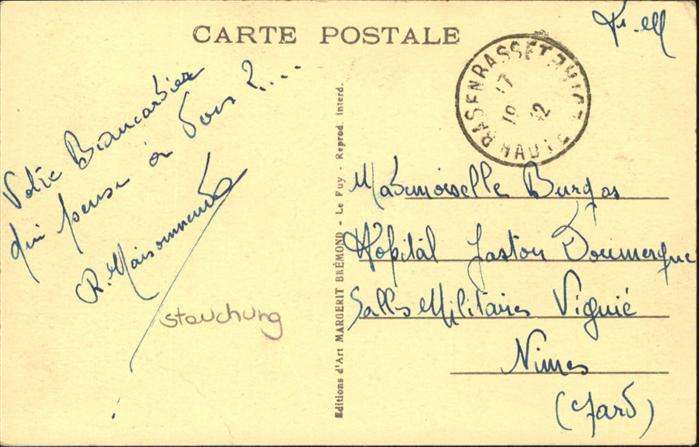 CARTE POSTALE
Fr. M
Votre Brancardier
qui pense à Vous ?....
R. Maisonneuve
stauchung
Editions d'Art MARGERIT BRÉMOND - Le Puy - Reprod. interd.
17
19 42
HAUTE
Mademoiselle Burgas
Hôpital Gaston Doumergue
Salles Militaires Viguié
Nimes
(Gard)